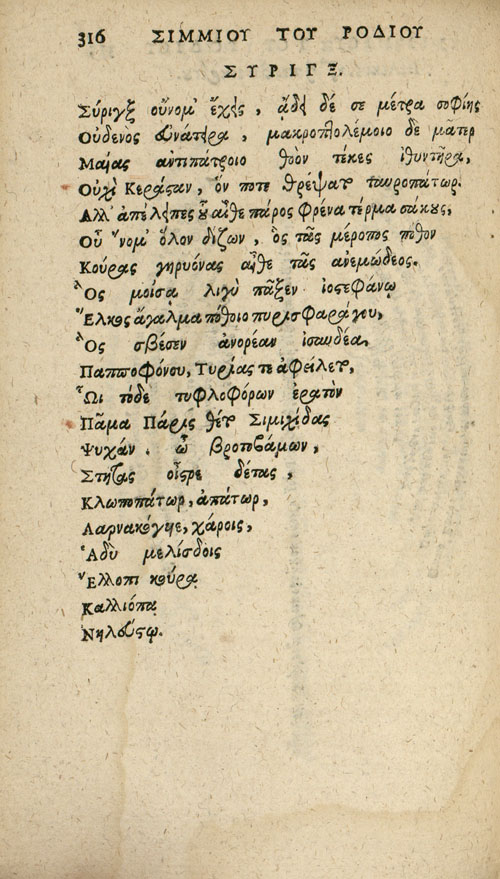 316 ΣΙΜΜΙΟΥ ΤΟΥ ΡΟΔΙΟΥ
ΣΥΡΙΓΞ.
Σύριγξ οὔνομ' ἔχεις, ᾄδει δέ σε μέτρα σοφίης
Οὐδενος εὐνάτειρα, μακροπτολέμοιο δε μᾶτερ
Μαίας αντιπάτροιο θοὸν τέκες ἰθυντῆρα,
Οὐχὶ Κεράσταν, ὅν ποτε θρέψατο ταυροπάτωρ.
Αλλ' ἀπέλειπες αἶθε πάρος φρένα τέρμα σάκους,
Οὗ νομ' ὅλον δίζων, ὃς τᾶς μέροπος πόθον
Κούρας γηρυόνας αἶθε τᾶς ανεμώδεος.
Ὃς μοίσα λιγὺ πᾶξεν ἰοστεφάνῳ
Ἕλκος ἄγαλμα πόθοιο πυρισφαράγου,
Ὃς σβέσεν ἀνορέαν ἰσαυδέα
Παππoφόνου, Τυρίας τε ἀφείλετο,
Ὧι τόδε τυφλοφόρων ἐρατὸν
Πᾶμα Πάρις θέτο Σιμιχίδας
Ψυχάν. ὦ βροτοβάμων,
Στήτας οἶστρε δέτας,
Κλωποπάτωρ, ἀπάτωρ,
Λαρνακόγυιε, χάροις,
Ἁδὺ μελίσδοις
Ἔλλοπι κούρᾳ
Καλλιόπᾳ
Νηλεύστῳ.